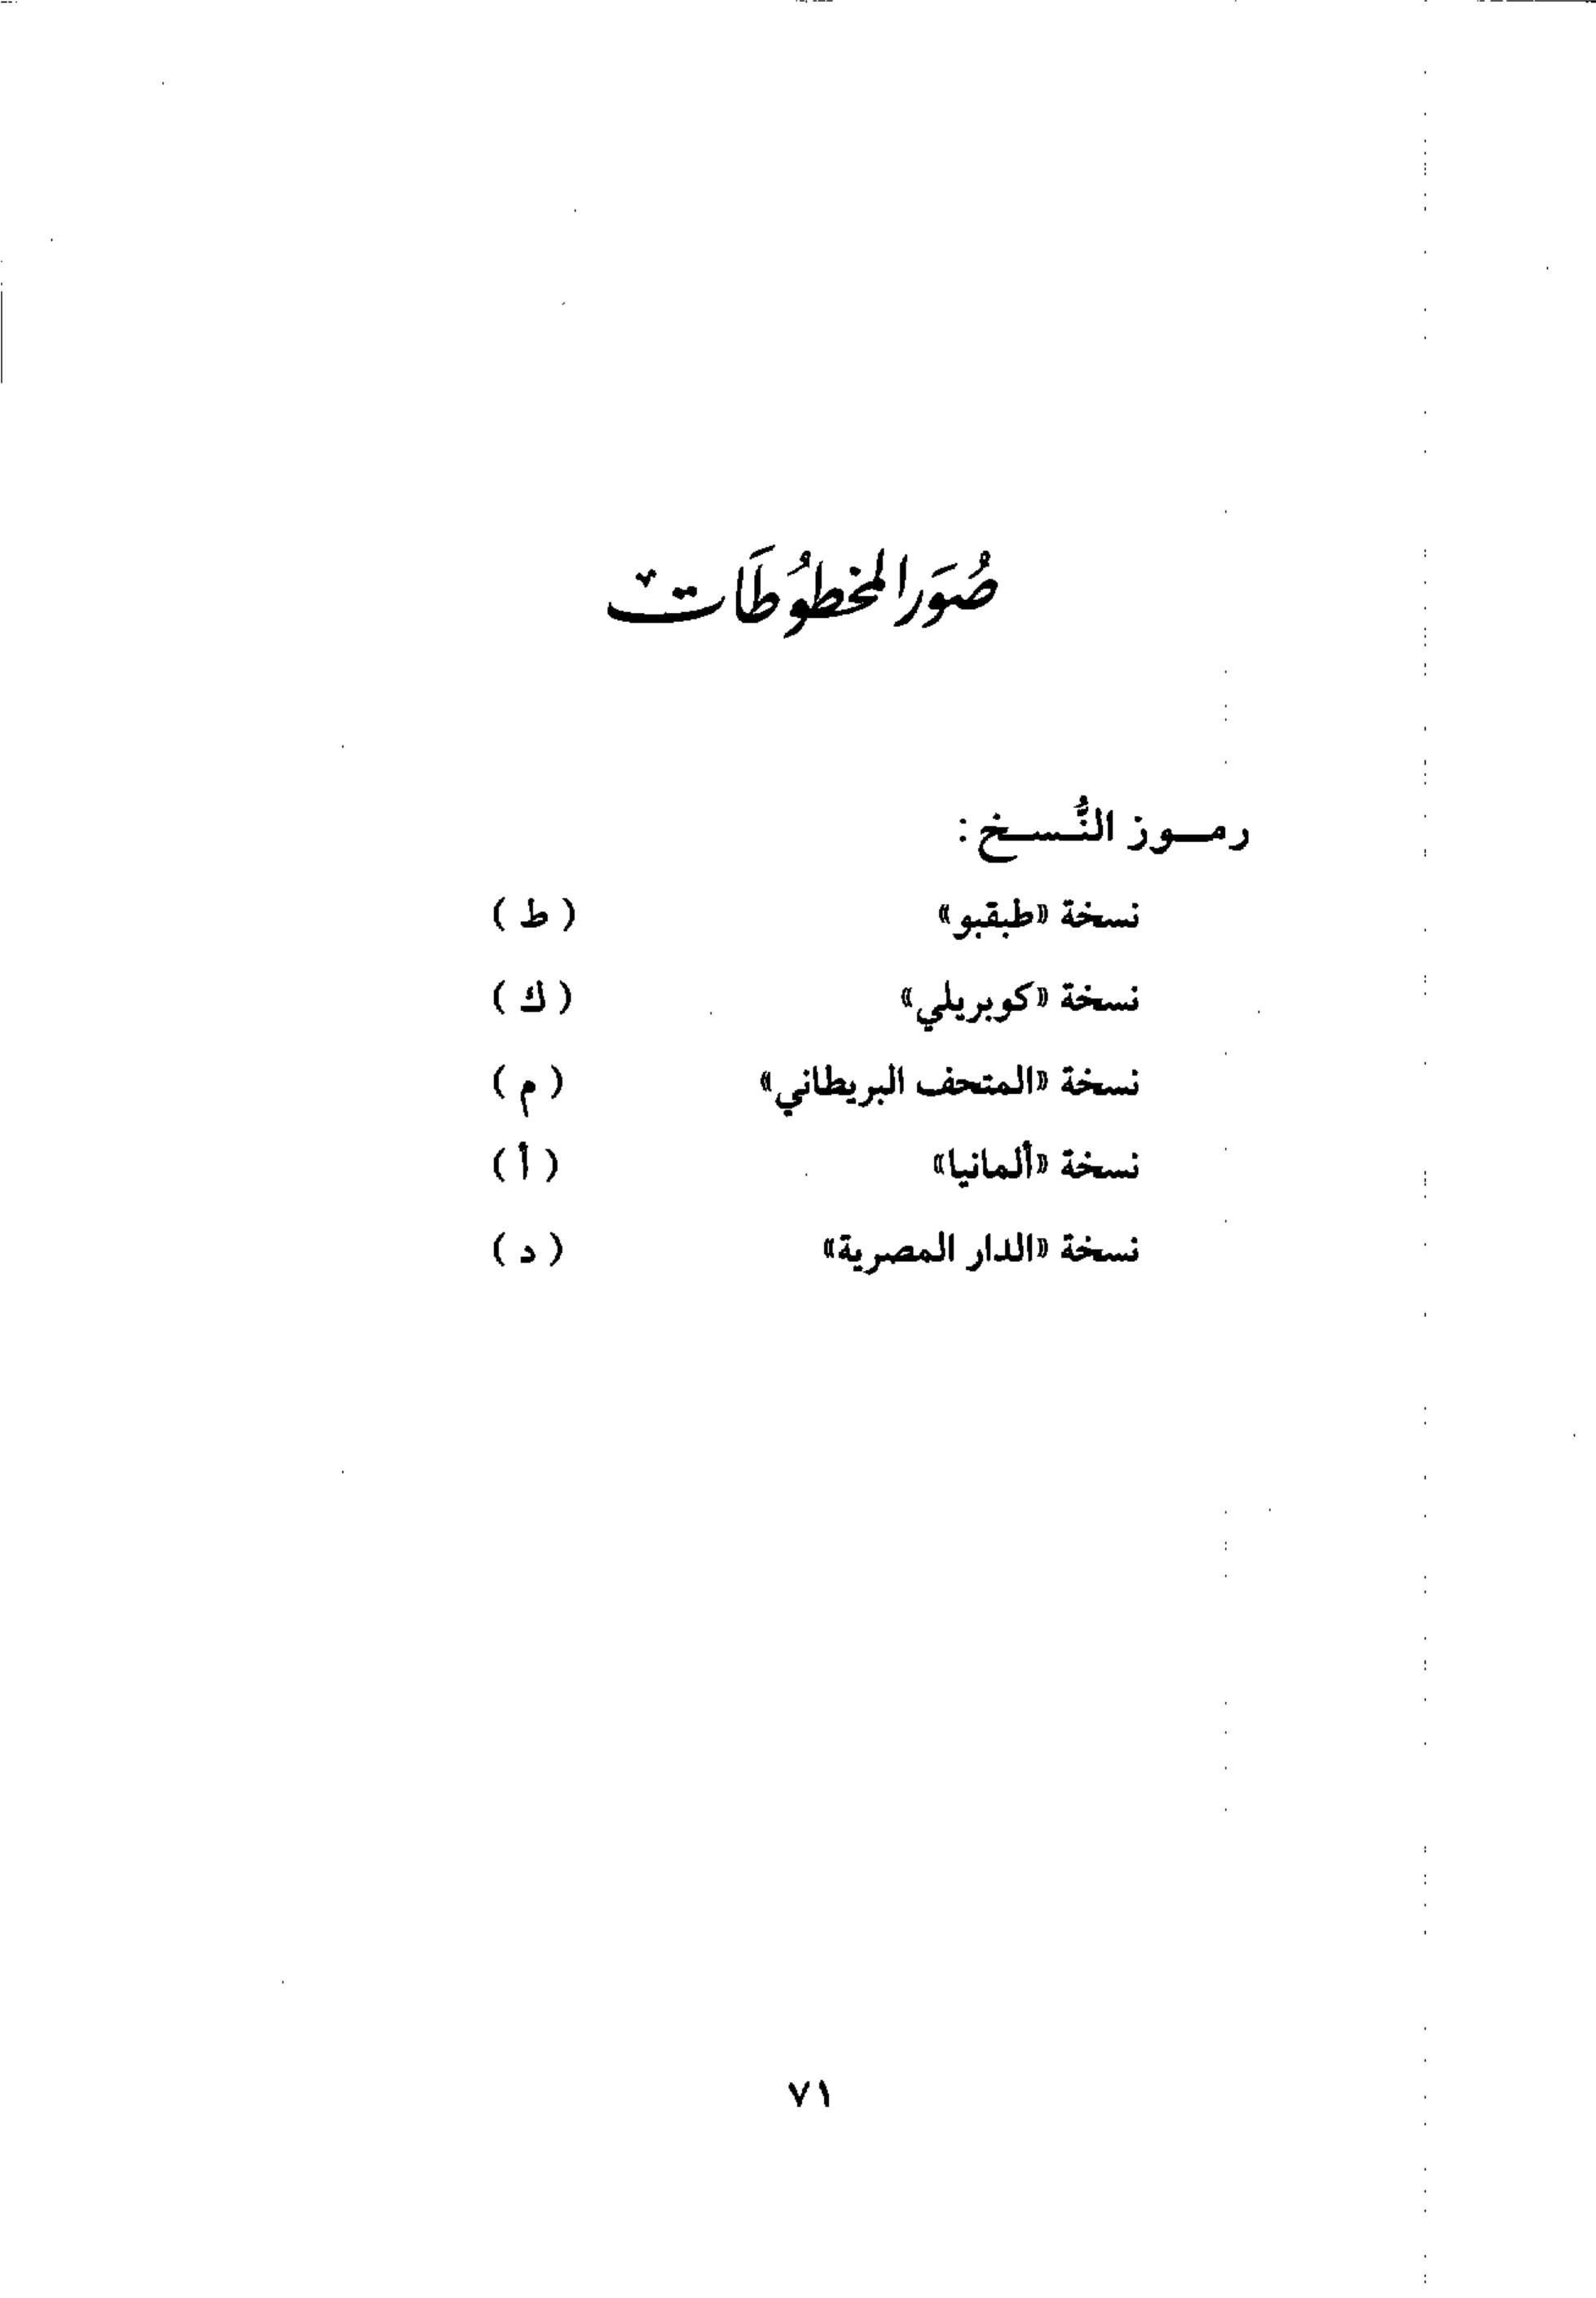 صُوَر المخطوُطَات
رمـــوز النُّـســـخ :
نسخة «طبقبو» ( ط )
نسخة «كوبريلي» ( ك )
نسخة «المتحف البريطاني» ( م )
نسخة «ألمانيا» ( أ )
نسخة «الدار المصرية» ( د )
٧١